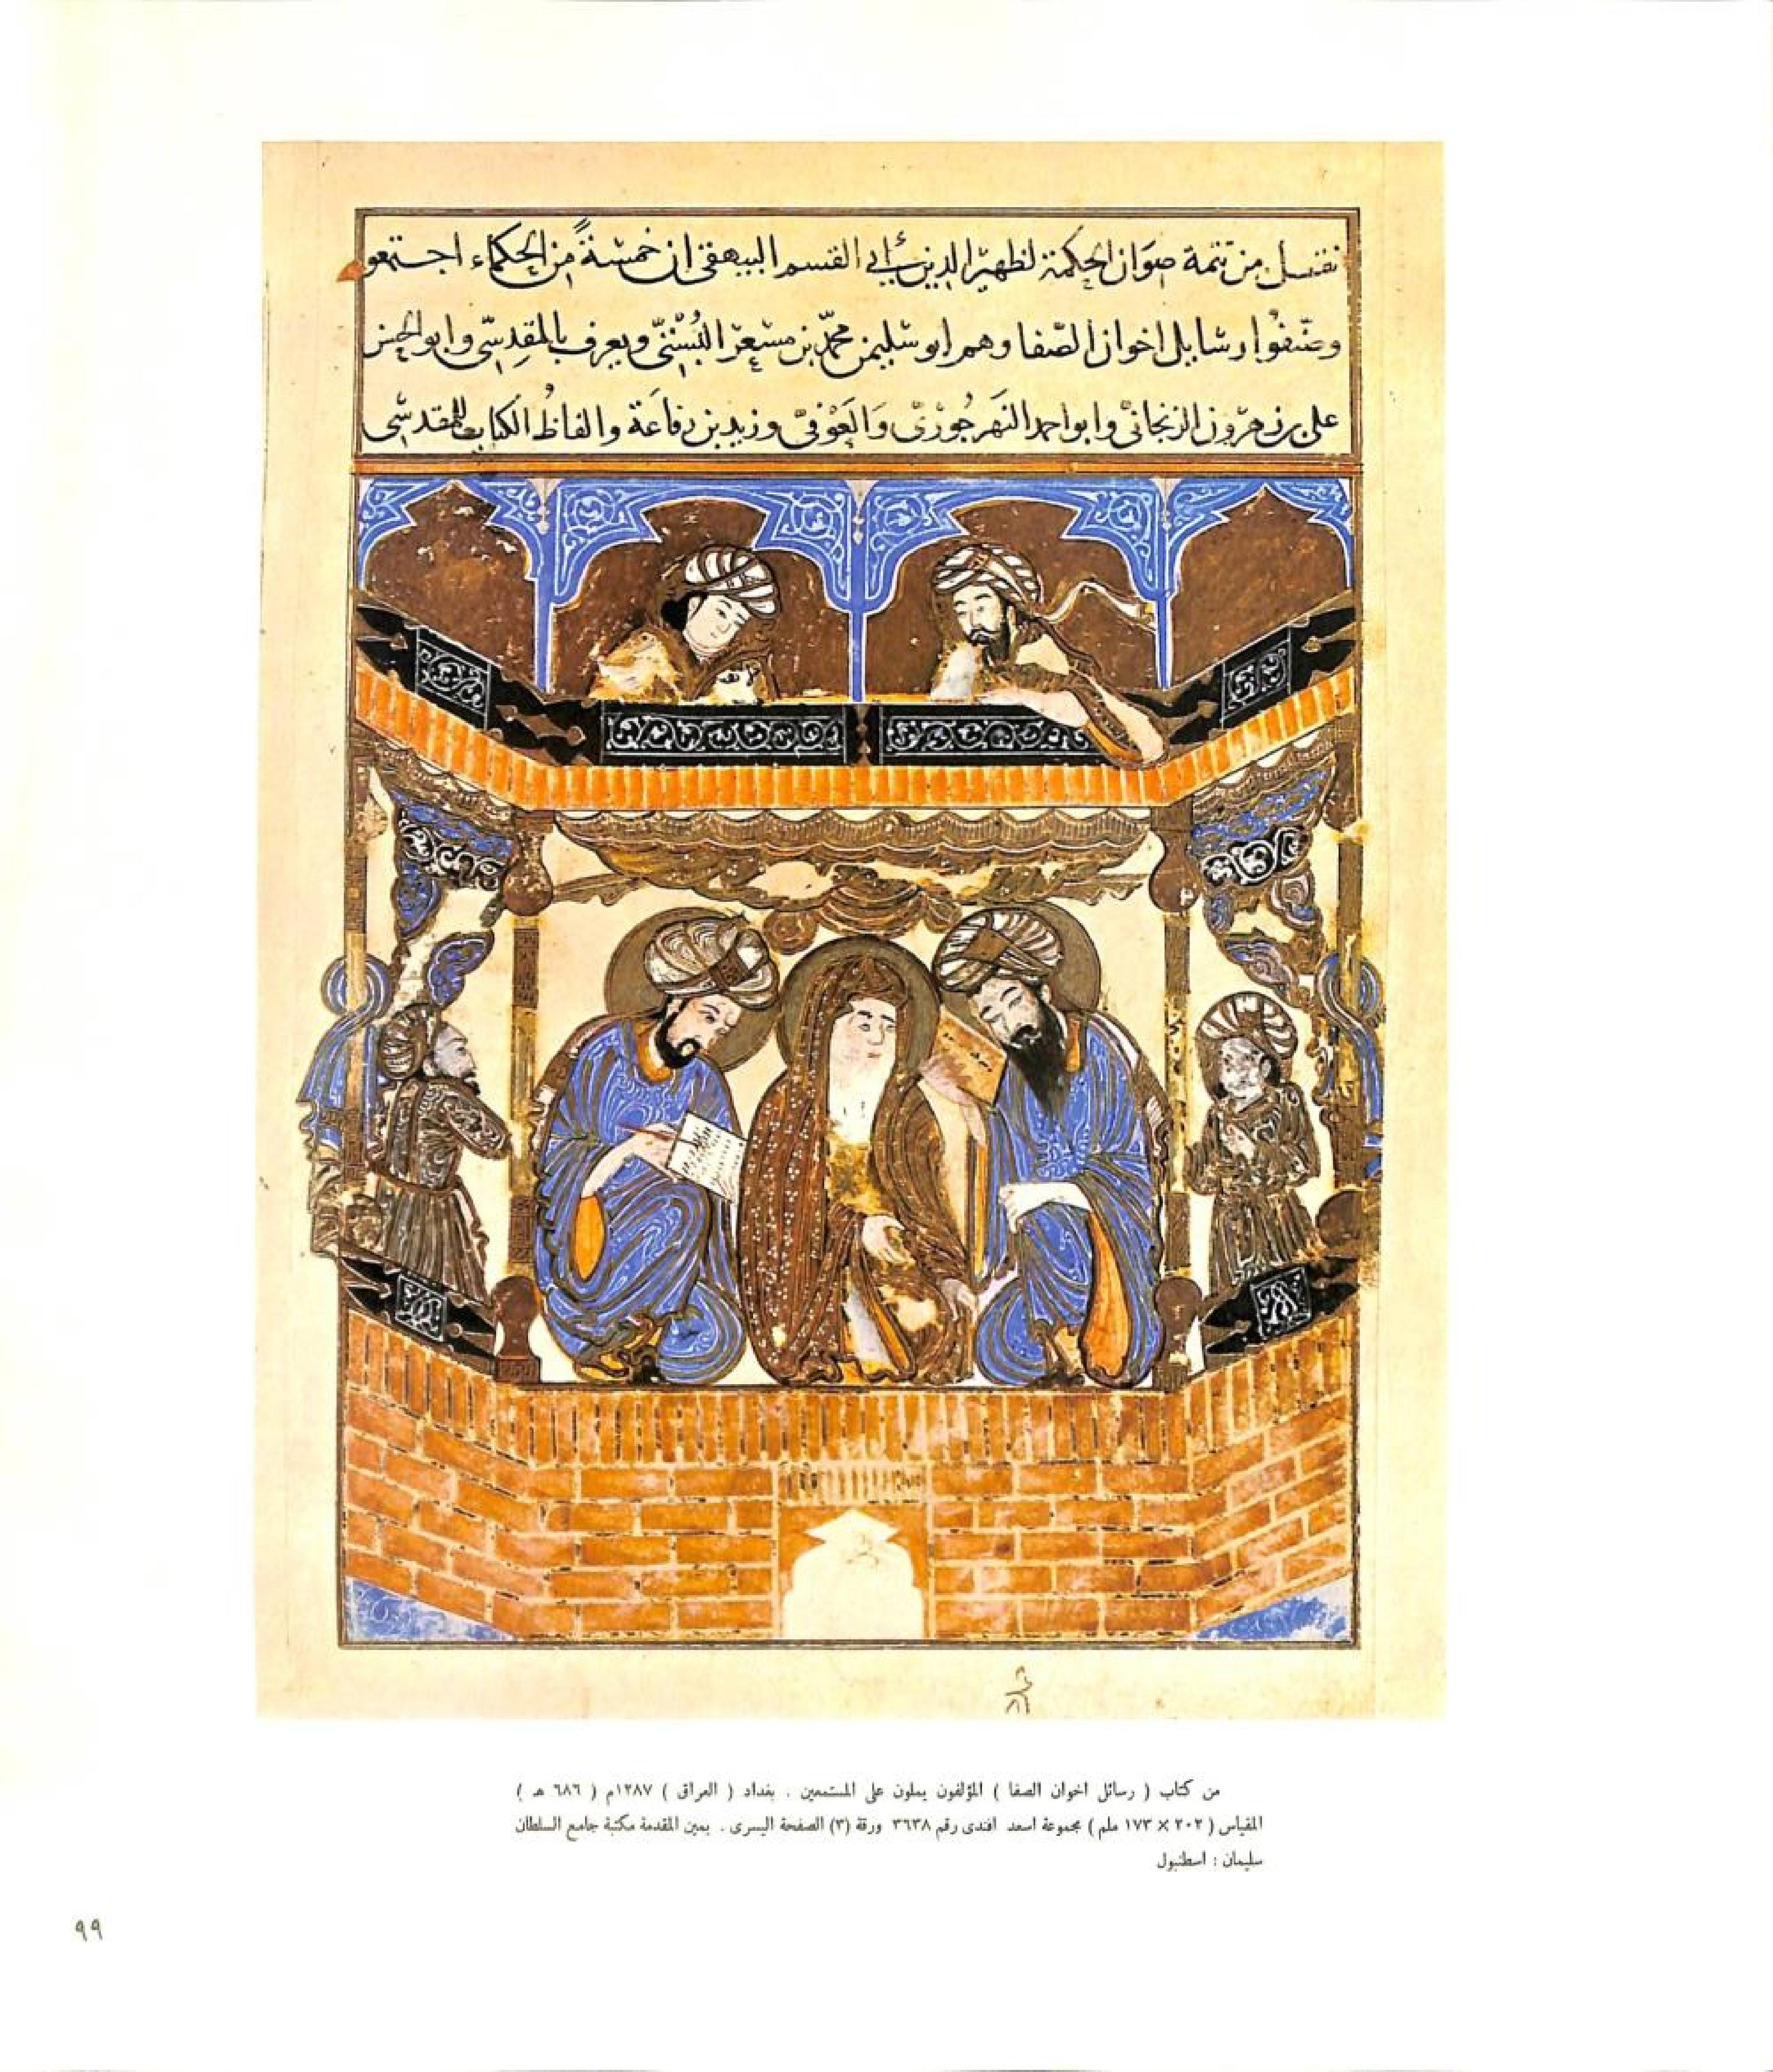 نقل من تتمة صوان الحكمة لظهير الدين أبي القسم البيهقي ان خمسة من الحكماء اجتمعوا
وصنفوا رسايل اخوان الصفا وهم ابو سليمن محمد بن مسعر البستي ويعرف بالمقدسي وابو الحسن
علي بن هرون الزنجاني وابو احمد النهرجوري والعوفي وزيد بن رفاعة والفاظ الكتاب للمقدسي
من كتاب ( رسائل اخوان الصفا ) المؤلفون يملون على المستمعين . بغداد ( العراق ) ١٢٨٧م ( ٦٨٦ هـ )
المقياس ( ٢٠٢ × ١٧٣ ملم ) مجموعة اسعد افندى رقم ٣٦٣٨ ورقة (٣) الصفحة اليسرى . يمين المقدمة مكتبة جامع السلطان
سليمان : اسطنبول
٩٩